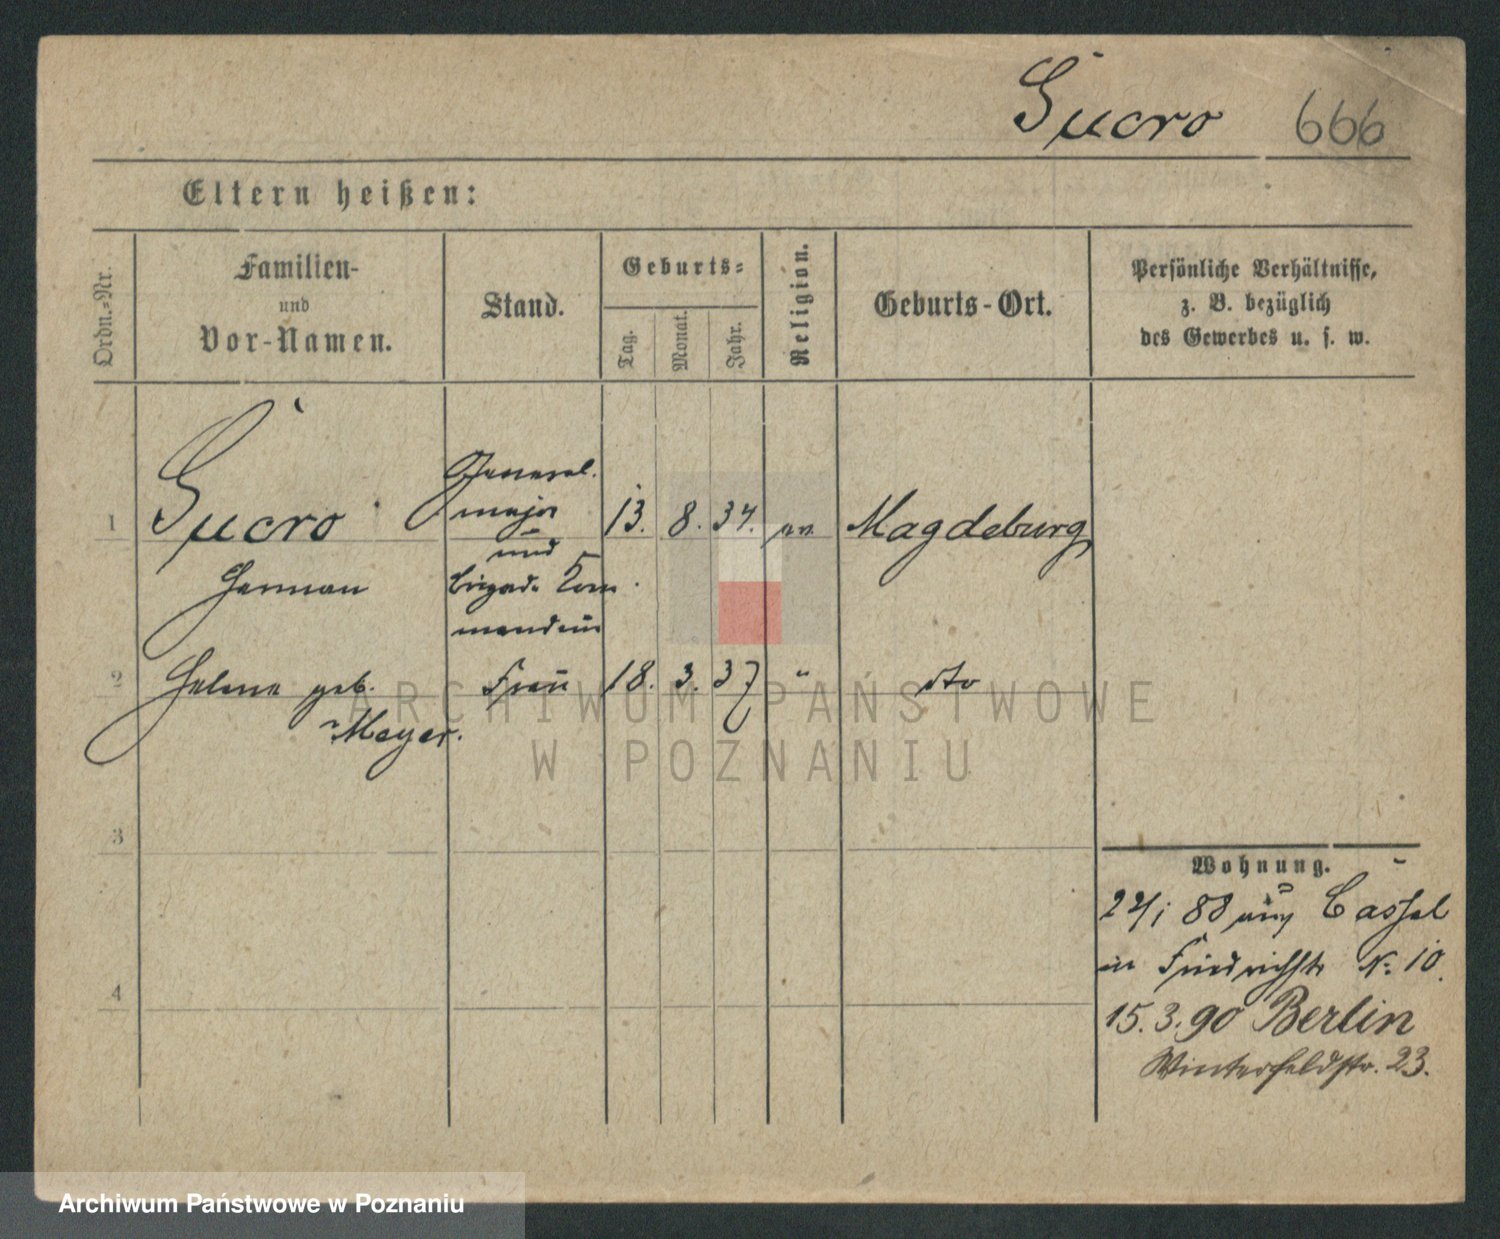 Sucro 666
Eltern heißen:
Ordn.-Nr.
Familien-
und
Vor-Namen.
Stand.
Geburts-
Tag.
Monat.
Jahr.
Religion.
Geburts-Ort.
Persönliche Verhältnisse,
z. B. bezüglich
des Gewerbes u. s. w.
1 Sucro
Herman
General.
major
und
Brigade Kom
mandeur
13. 8. 34. ev. Magdeburg
2 Helene geb.
Meyer.
Frau 18. 3. 37 " dto
3
4
Wohnung.
Cassel
in Friedrichstr N. 10.
15.3.90 Berlin
Winterfeldstr. 23.
ARCHIWUM PAŃSTWOWE
W POZNANIU
Archiwum Państwowe w Poznaniu